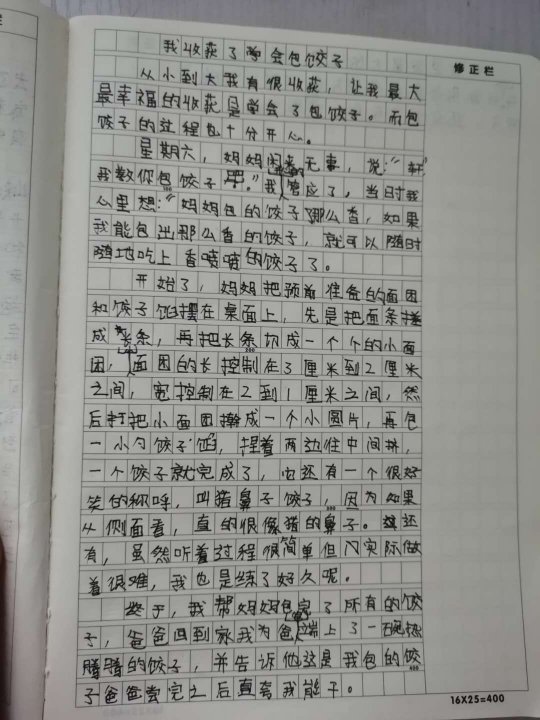 修正栏
我收获了学会包饺子
从小到大我有很收获，让我最大
最幸福的收获是学会了包饺子。而包
饺子的过程也十分开心。
星期六，妈妈闲来无事，说：“
我教你包饺子吧。”我答应了，当时我
心里想：“妈妈包的饺子那么香，如果
我能包出那么香的饺子，就可以随时
随地吃上香喷喷的饺子了。
开始了，妈妈把预前准备的面团
和饺子馅摆在桌面上，先是把面条搓
成长条，再把长条切成一个个的小面
团，面团的长控制在3厘米到2厘米
之间，宽控制在2到1厘米之间，然
后打把小面团擀成一个小圆片，再包
一小勺饺子馅，捏着两边往中间挤，
一个饺子就完成了，它还有一个很好
笑的称呼，叫猪鼻子饺子，因为如果
从侧面看，真的很像猪的鼻子。还
有，虽然听着过程很简单但实际做
着很难，我也是练了好久呢。
终于，我帮妈妈包完了所有的饺
子，爸爸回到家我为爸端上了一碗热
腾腾的饺子，并告诉他这是我包的饺
子爸爸尝完之后直夸我能干。
16X25=400